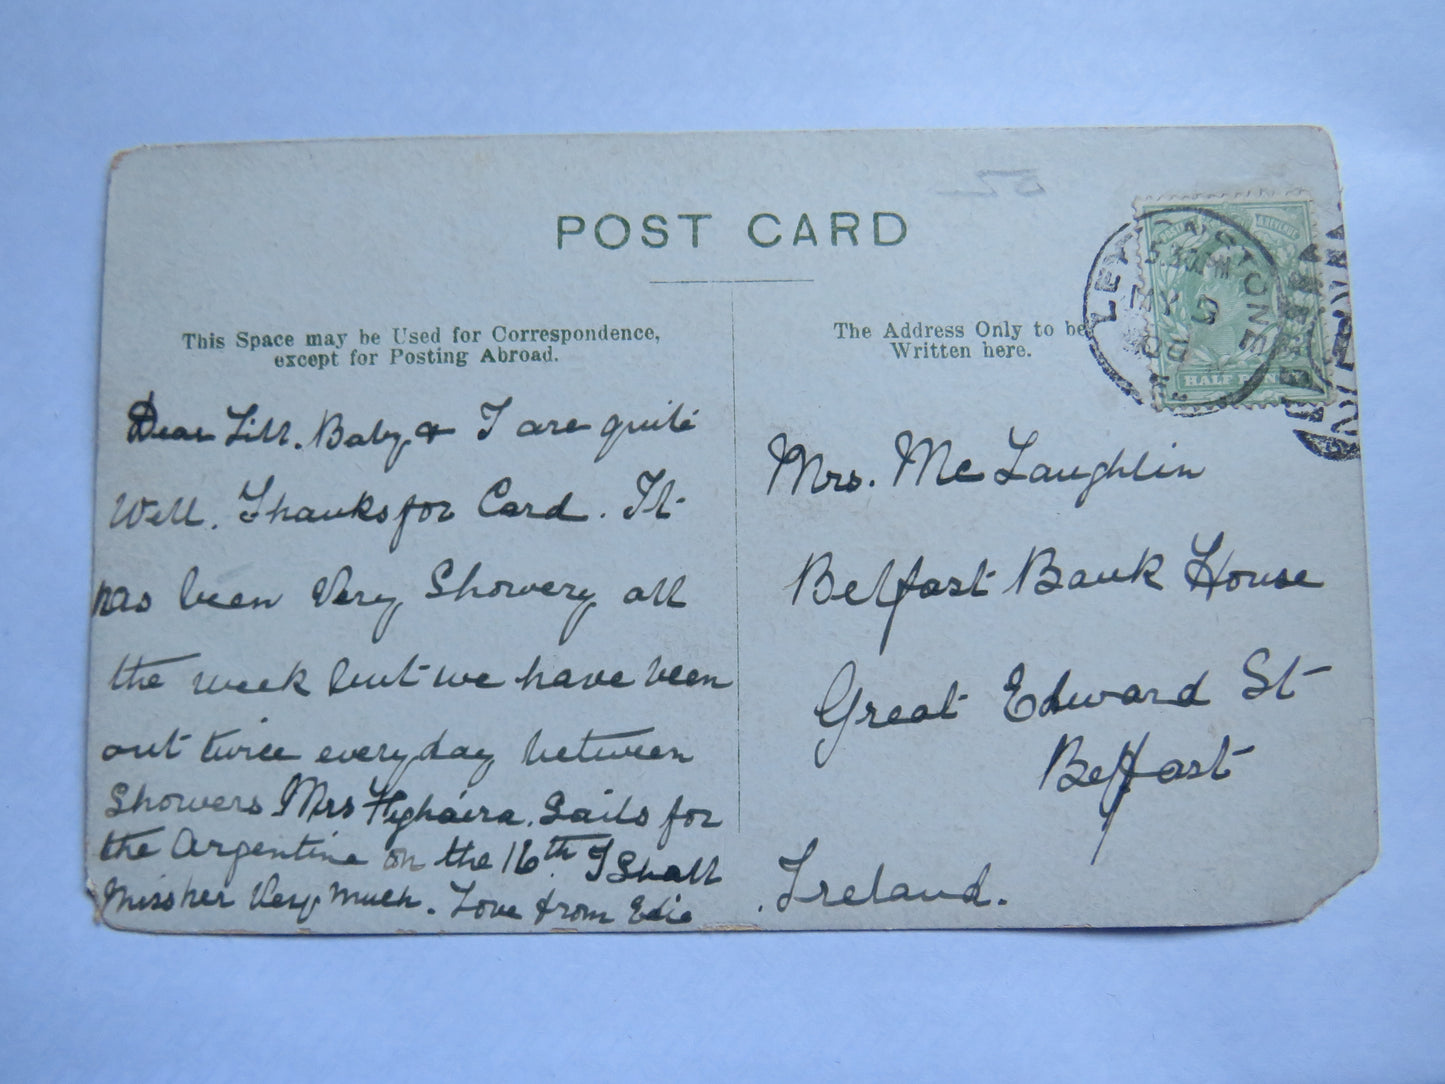 POST CARD
This Space may be Used for Correspondence,
except for Posting Abroad.
The Address Only to be
Written here.
LEYTONSTONE
MY
HALF PENNY
Dear Lill. Baby & I are quite
Well. Thanks for Card. It
has been Very Showery all
the week but we have been
out twice every day between
Showers Mrs Sails for
the Argentine on the 16th. I Shall
Miss her Very much. Love from Edie
Mrs. McLaughlin
Belfast Bank House
Great Edward St
Belfast
Ireland.